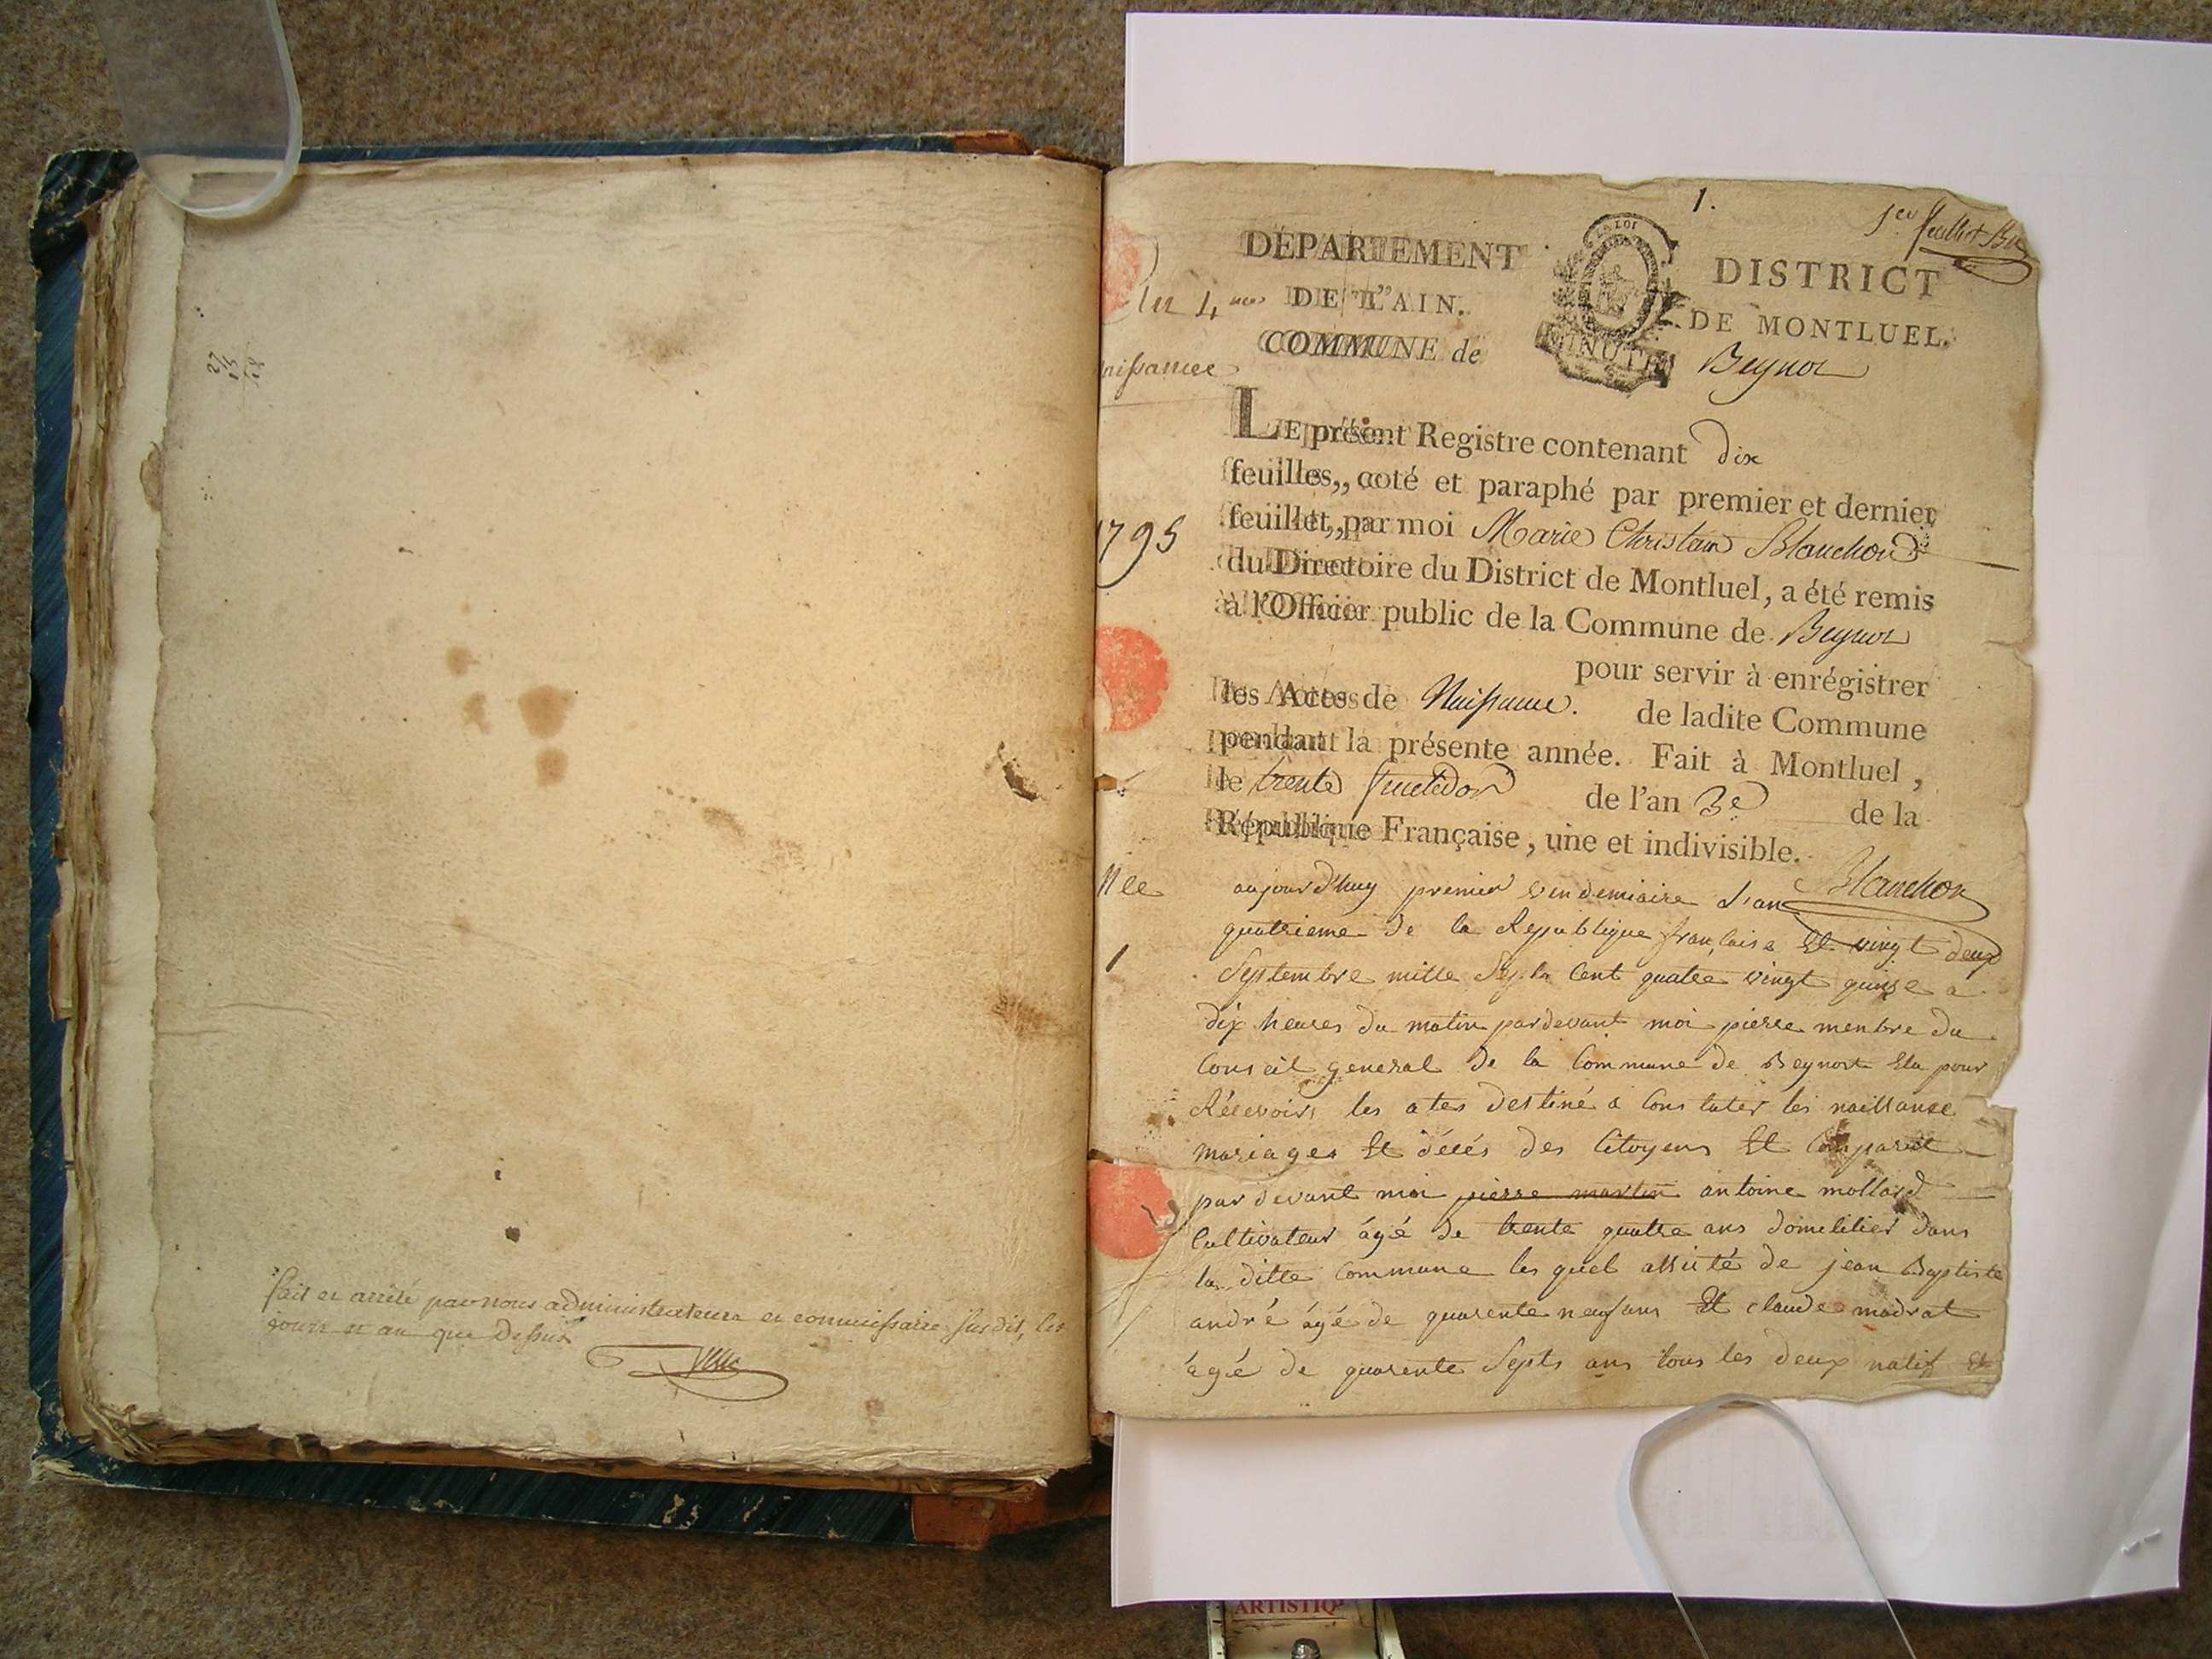 fait et arrêté par nous administrateurs et commissaire susdit, les
jours et an que dessus
1.
1er feuillet
DÉPARTEMENT
DE L'AIN.
COMMUNE de
LA LOI
MINUTE
DISTRICT
DE MONTLUEL.
Beynor
an 4me
naissance
LE présent Registre contenant dix
feuilles, coté et paraphé par premier et dernier
feuillet, par moi Marie Christain Blanchon
du Directoire du District de Montluel, a été remis
à l'Officier public de la Commune de Beynor
pour servir à enrégistrer
les Actes de Naissance. de ladite Commune
pendant la présente année. Fait à Montluel,
le trente fructidor de l'an 3e de la
République Française, une et indivisible.
Blanchon
1795
1
aujourd'huy premier vendemiaire l'an
quatrieme de la Republique francaise Et vingt deux
Septembre mille Sept Cent quatre vingt quinse a
dix heures du matin pardevant moi pierre menbre du
Conseil general de la Commune de Beynort Elu pour
Récevoir les actes destiné a Constater les naissance
mariages Et décés des Citoyens Et Comparut
pardevant moi pierre martin antoine mollard
Cultivateur ágé de trente quatre ans domicilier dans
la ditte Commune lesquel assisté de jean Baptiste
andré ágé de quarente neuf ans Et claude madrat
ágé de quarente Septs ans tous les deux natif Et
ARTISTIQ